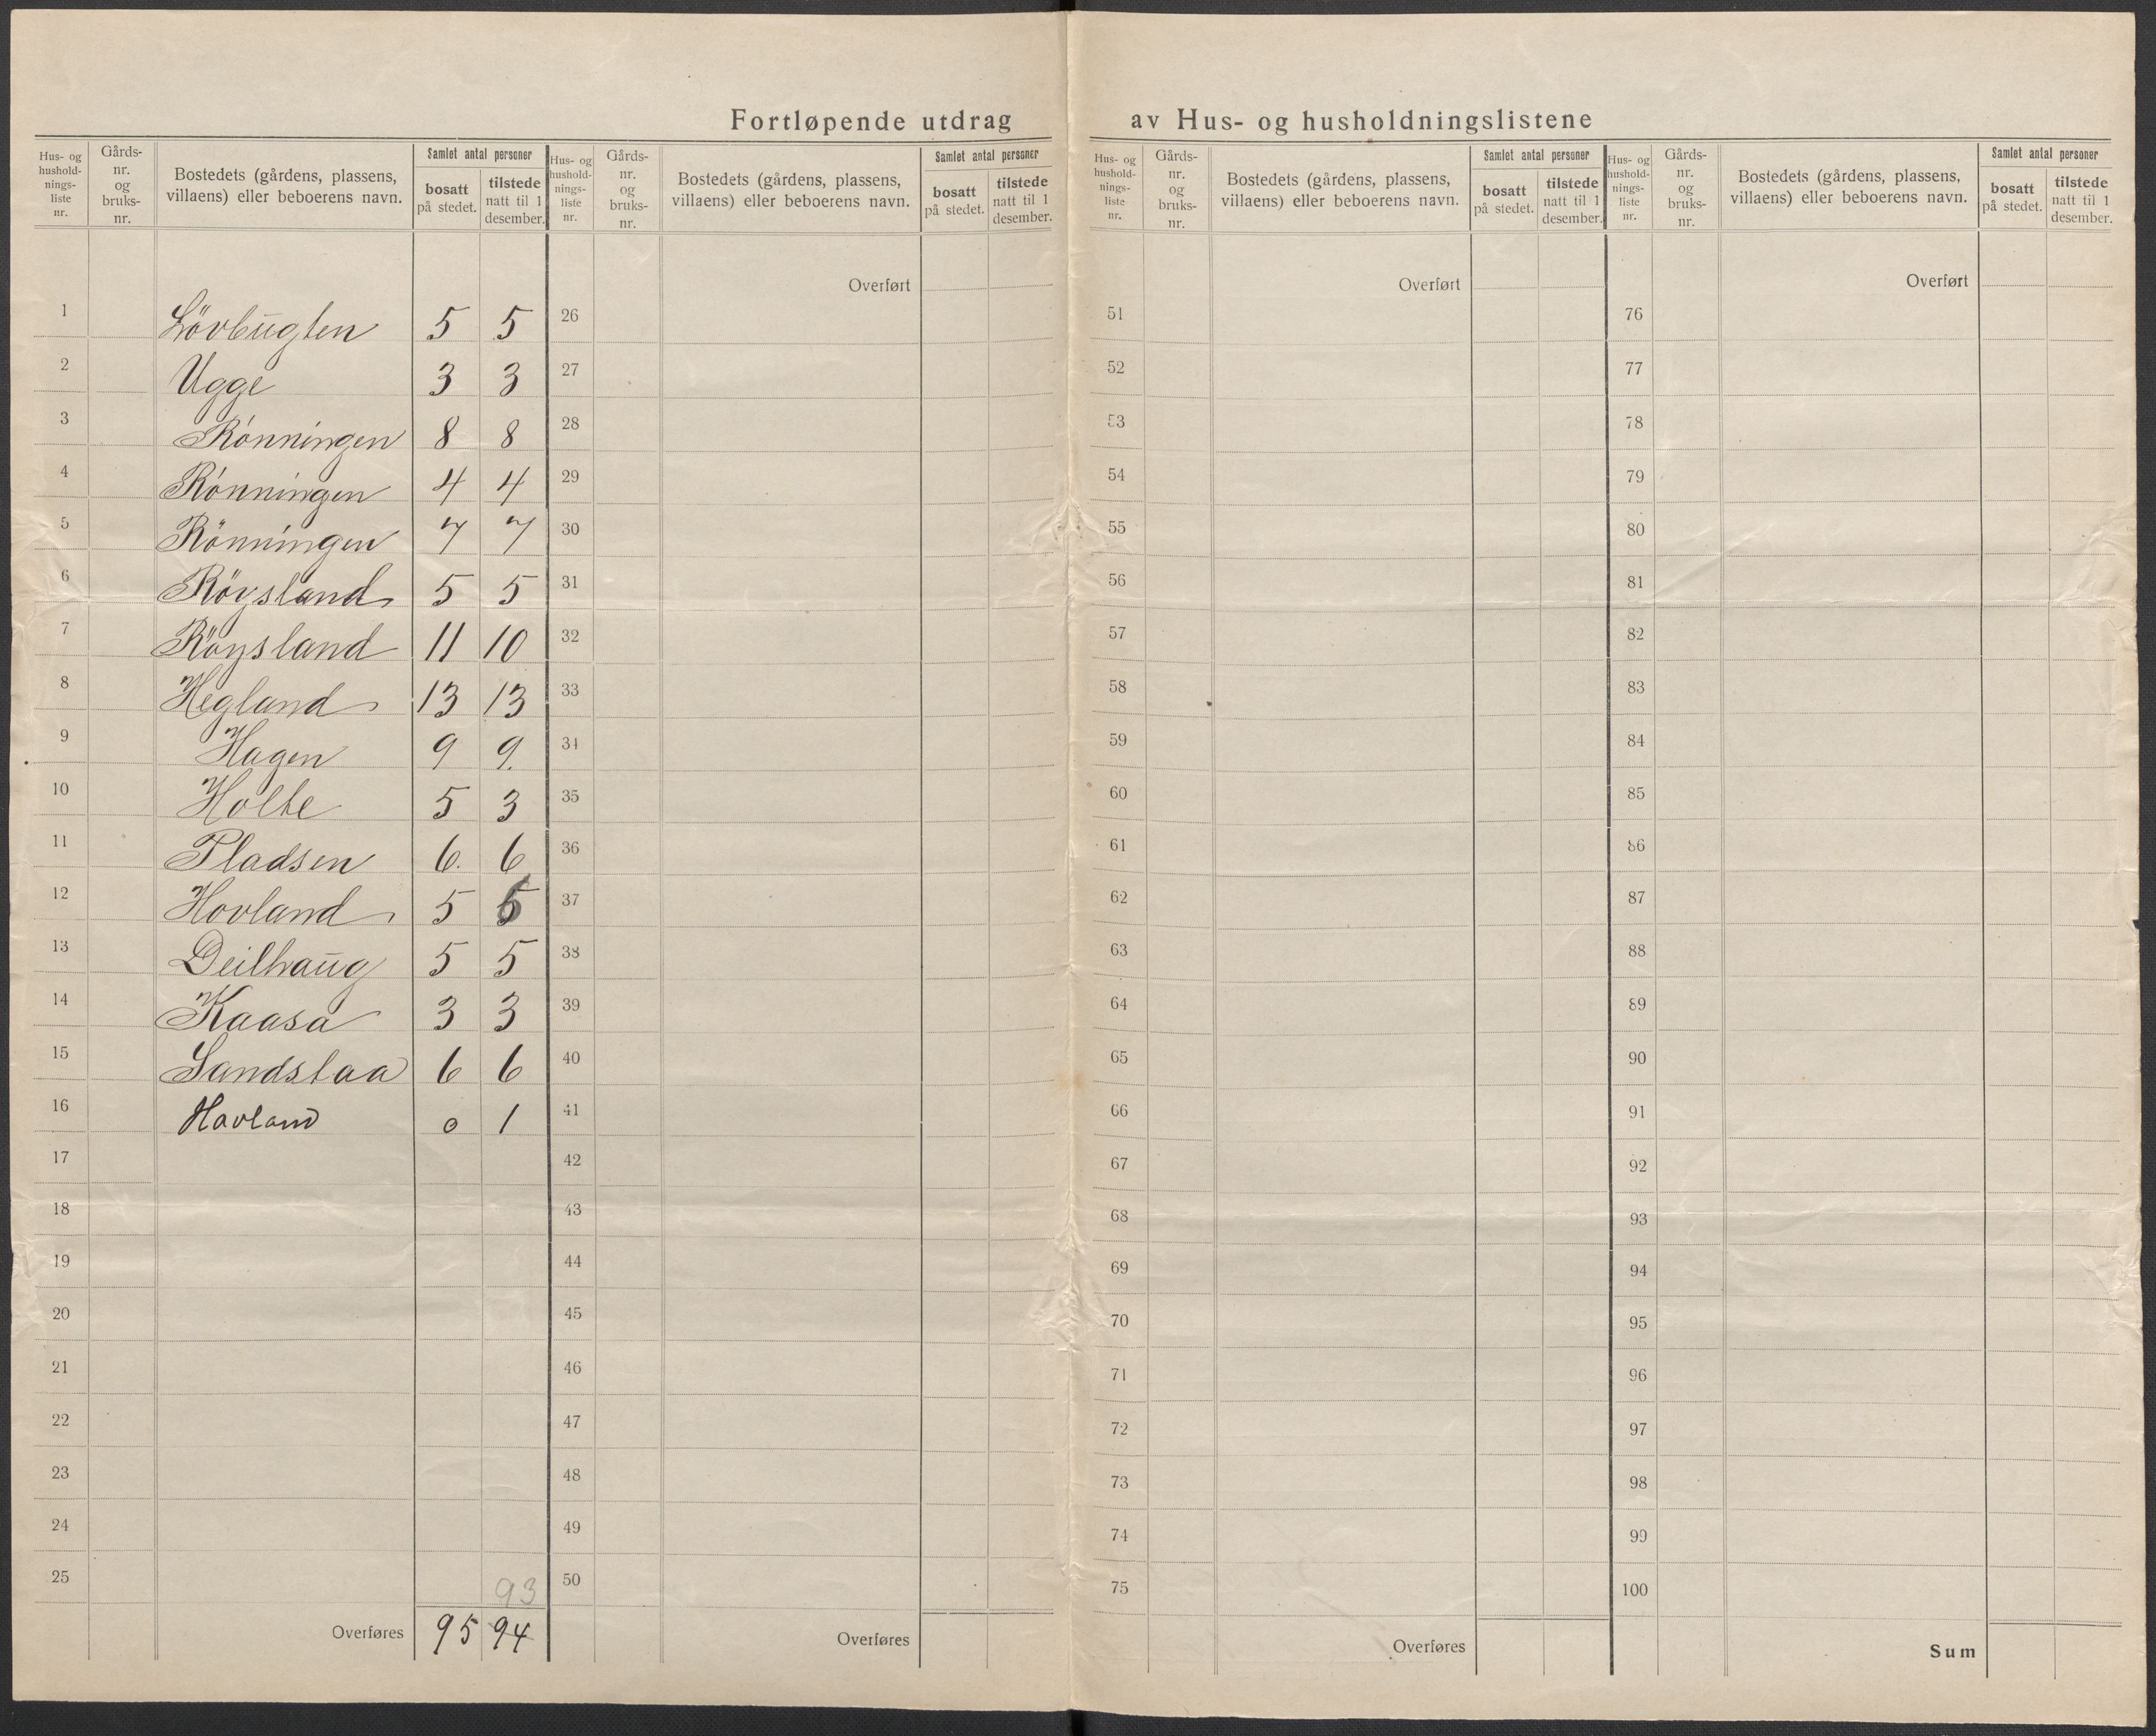 Fortløpende utdrag av Hus- og husholdningslistene
Hus- og hushold-nings-liste nr. | Gårds-nr. og bruks-nr. | Bostedets (gårdens, plassens, villaens) eller beboerens navn. | Samlet antal personer | bosatt på stedet. | tilstede natt til 1 desember.
Hus- og hushold-nings-liste nr. | Gårds-nr. og bruks-nr. | Bostedets (gårdens, plassens, villaens) eller beboerens navn. | Samlet antal personer | bosatt på stedet. | tilstede natt til 1 desember.
Hus- og hushold-nings-liste nr. | Gårds-nr. og bruks-nr. | Bostedets (gårdens, plassens, villaens) eller beboerens navn. | Samlet antal personer | bosatt på stedet. | tilstede natt til 1 desember.
Hus- og hushold-nings-liste nr. | Gårds-nr. og bruks-nr. | Bostedets (gårdens, plassens, villaens) eller beboerens navn. | Samlet antal personer | bosatt på stedet. | tilstede natt til 1 desember.
Overført Overført Overført
1 Lövbugten 5 5 26 51 76
2 Ugge 3 3 27 52 77
3 Rönningen 8 8 28 53 78
4 Rönningen 4 4 29 54 79
5 Rönningen 7 7 30 55 80
6 Röysland 5 5 31 56 81
7 Röysland 11 10 32 57 82
8 Hegland 13 13 33 58 83
9 Hagen 9 9. 34 59 84
10 Holte 5 3 35 60 85
11 Pladsen 6. 6 36 61 86
12 Hovland 5 37 62 87
13 Deilhaug 5 5 38 63 88
14 Kaasa 3 3 39 64 89
15 Sandstaa 6 6 40 65 90
16 Hovland 0 1 41 66 91
17 42 67 92
18 43 68 93
19 44 69 94
20 45 70 95
21 46 71 96
22 47 72 97
23 48 73 98
24 49 74 99
25 93 50 75 100
Overføres 95 94 Overføres Overføres Sum